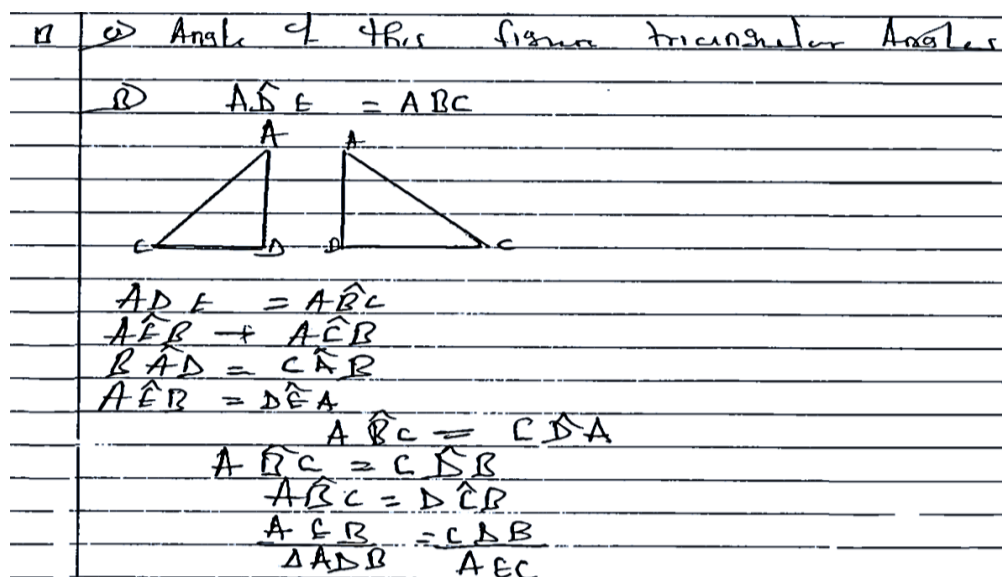 a) Angle of this figure triangular Angles
B) AD̂E = ABC
A A
E D D C
ADE = AB̂C
AÊB → AĈB
BÂD = CÂB
AÊB = DÊA
AB̂C = CD̂A
AB̂C = CD̂B
AB̂C = DĈB
AEB = CDB
ΔADB AEC